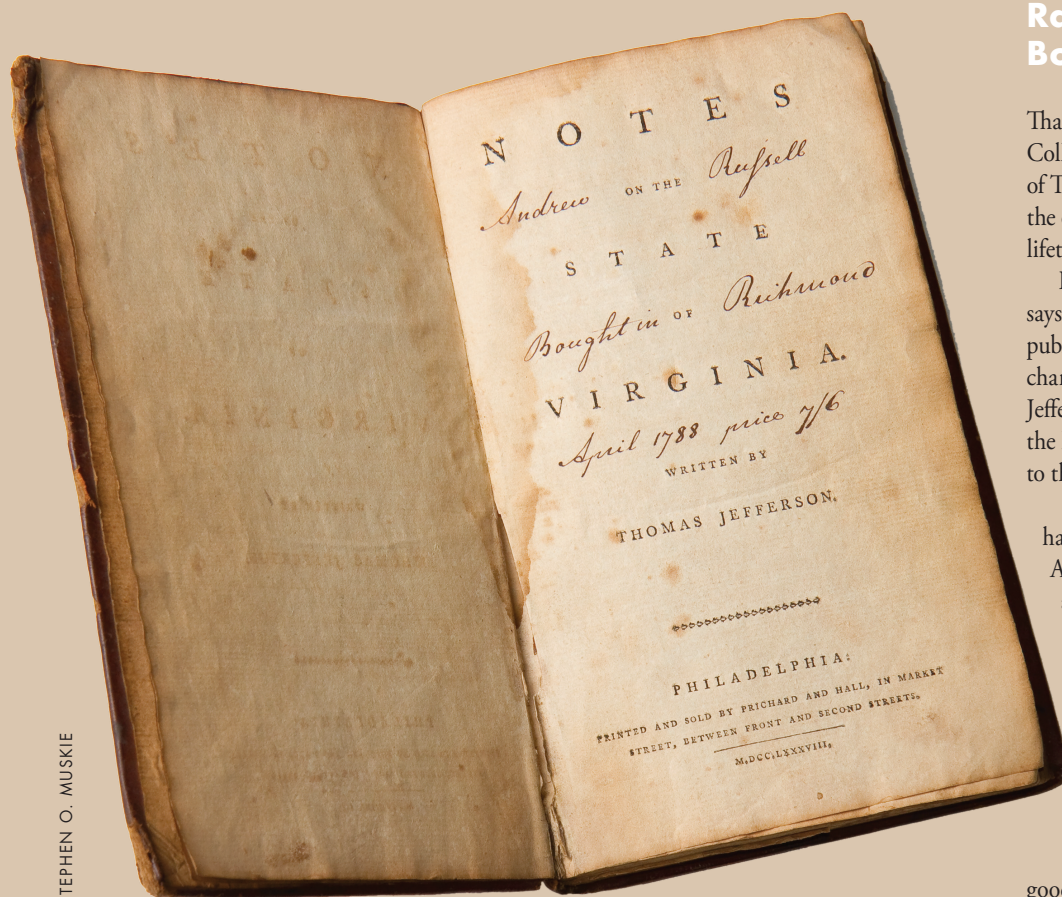 NOTES
Andrew ON THE Russell
STATE
Bought in OF Richmond
VIRGINIA.
April 1788 price 7/6
WRITTEN BY
THOMAS JEFFERSON.
PHILADELPHIA:
PRINTED AND SOLD BY PRICHARD AND HALL, IN MARKET
STREET, BETWEEN FRONT AND SECOND STREETS.
M.DCC.LXXXVIII.
TEPHEN O. MUSKIE
Ra
Bo
Tha
Coll
of T
the
lifet
says
pub
char
Jeffe
the
to th
ha
A
good